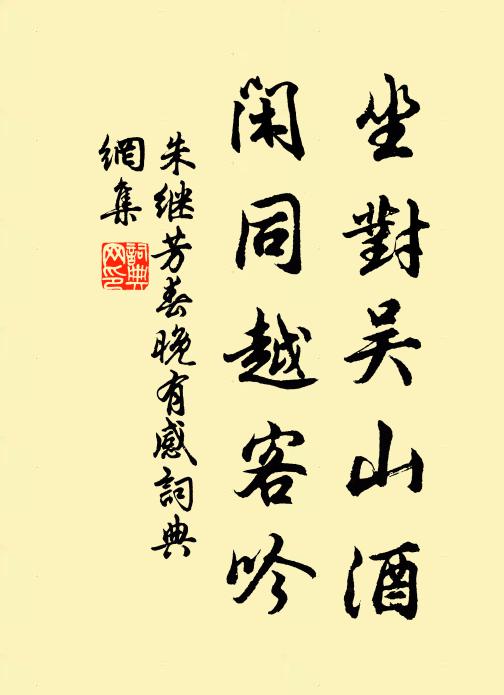 坐對吴山酒
閑同越客吟
朱继芳春晚有感詞典
網集
詞典
网印